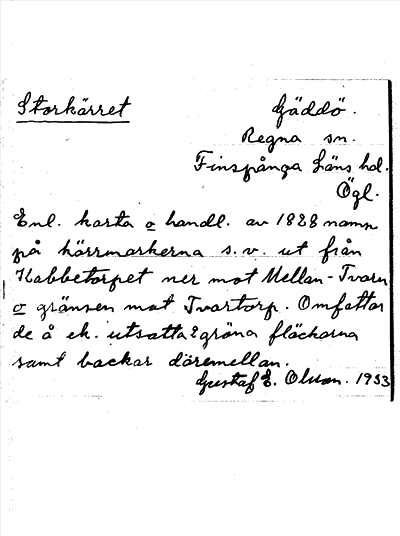 Storkärret
Gäddö.
Regna sn.
Finspånga läns hd.
Ögl.
Enl. karta o handl. av 1828 namn
på kärrmarkerna s.v. ut från
Kabbetorpet ner mot Mellan-Tvaren
o gränsen mot Tvartorp. Omfattar
de å ek. utsatta gröna fläckarna
samt backar däremellan.
Gustaf E. Olsson. 1933